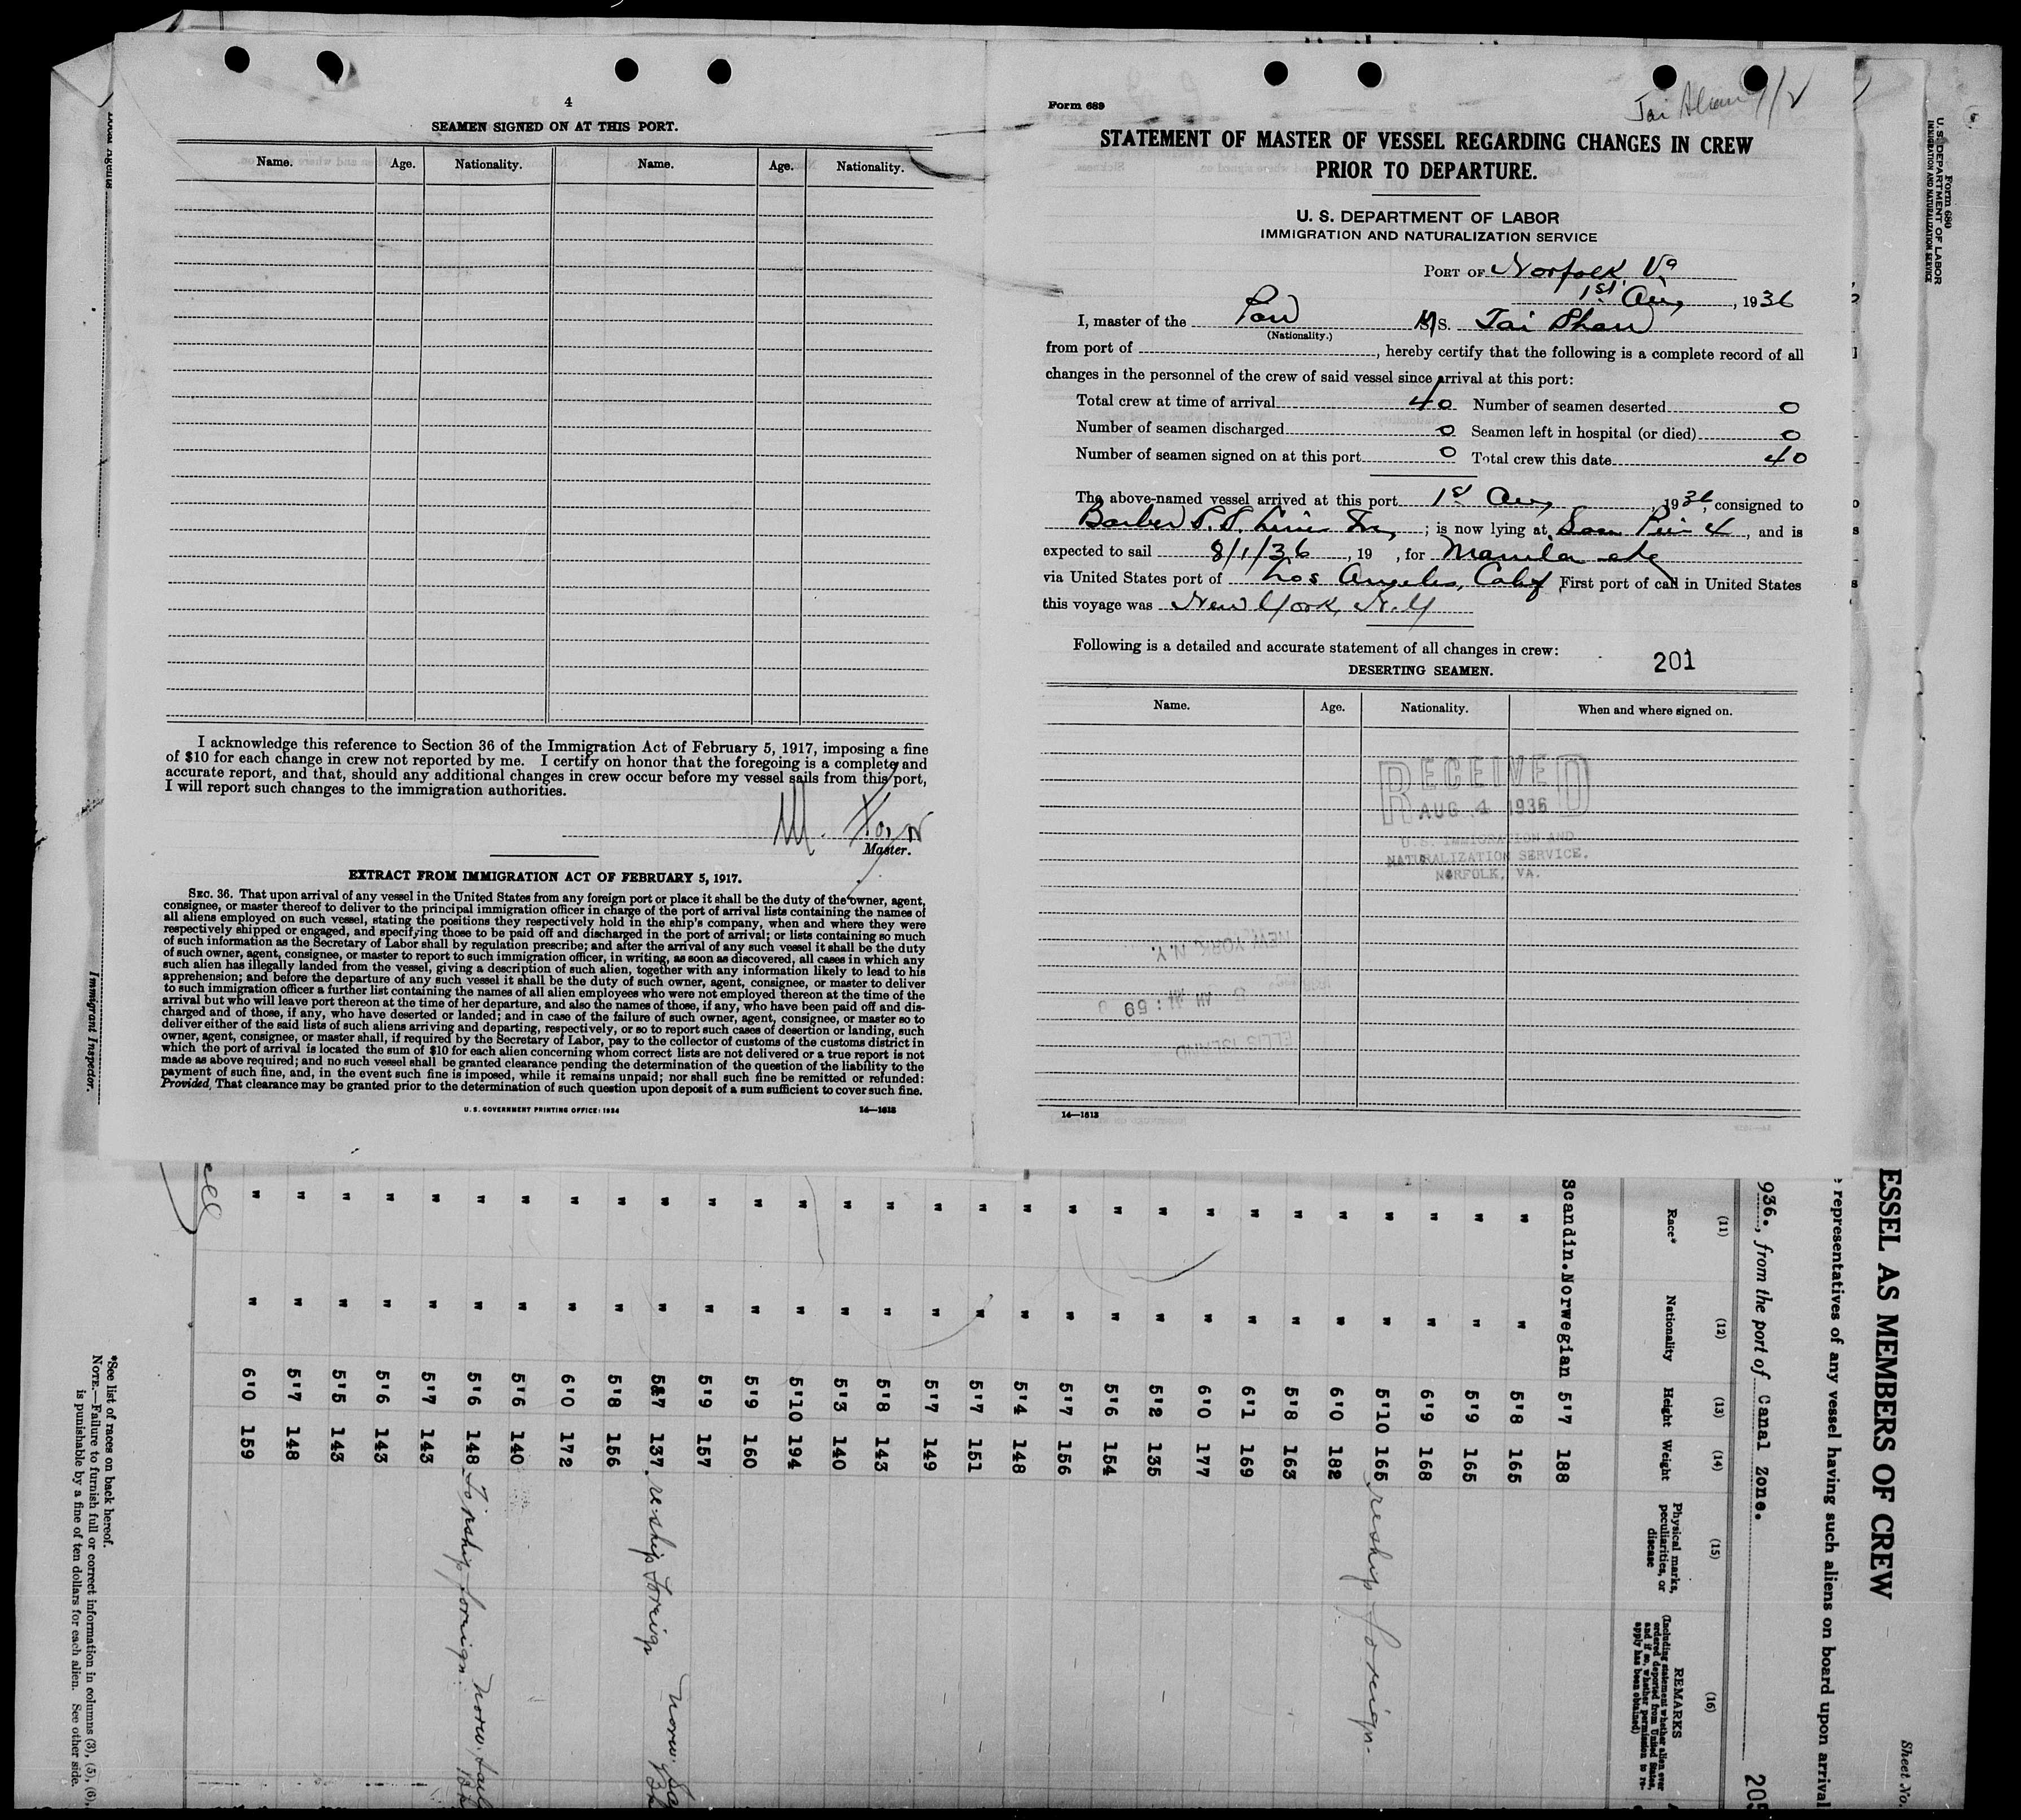 4
SEAMEN SIGNED ON AT THIS PORT.
Name. Age. Nationality. Name. Age. Nationality.
I acknowledge this reference to Section 36 of the Immigration Act of February 5, 1917, imposing a fine
of $10 for each change in crew not reported by me. I certify on honor that the foregoing is a complete and
accurate report, and that, should any additional changes in crew occur before my vessel sails from this port,
I will report such changes to the immigration authorities.
Master.
EXTRACT FROM IMMIGRATION ACT OF FEBRUARY 5, 1917.
SEC. 36. That upon arrival of any vessel in the United States from any foreign port or place it shall be the duty of the owner, agent,
consignee, or master thereof to deliver to the principal immigration officer in charge of the port of arrival lists containing the names of
all aliens employed on such vessel, stating the positions they respectively hold in the ship's company, when and where they were
respectively shipped or engaged, and specifying those to be paid off and discharged in the port of arrival; or lists containing so much
of such information as the Secretary of Labor shall by regulation prescribe; and after the arrival of any such vessel it shall be the duty
of such owner, agent, consignee, or master to report to such immigration officer, in writing, as soon as discovered, all cases in which any
such alien has illegally landed from the vessel, giving a description of such alien, together with any information likely to lead to his
apprehension; and before the departure of any such vessel it shall be the duty of such owner, agent, consignee, or master to deliver
to such immigration officer a further list containing the names of all alien employees who were not employed thereon at the time of the
arrival but who will leave port thereon at the time of her departure, and also the names of those, if any, who have been paid off and dis-
charged and of those, if any, who have deserted or landed; and in case of the failure of such owner, agent, consignee, or master so to
deliver either of the said lists of such aliens arriving and departing, respectively, or so to report such cases of desertion or landing, such
owner, agent, consignee, or master shall, if required by the Secretary of Labor, pay to the collector of customs of the customs district in
which the port of arrival is located the sum of $10 for each alien concerning whom correct lists are not delivered or a true report is not
made as above required; and no such vessel shall be granted clearance pending the determination of the question of the liability to the
payment of such fine, and, in the event such fine is imposed, while it remains unpaid; nor shall such fine be remitted or refunded:
Provided, That clearance may be granted prior to the determination of such question upon deposit of a sum sufficient to cover such fine.
U. S. GOVERNMENT PRINTING OFFICE: 1934 14—1613
Form 689
STATEMENT OF MASTER OF VESSEL REGARDING CHANGES IN CREW
PRIOR TO DEPARTURE.
U. S. DEPARTMENT OF LABOR
IMMIGRATION AND NATURALIZATION SERVICE
PORT OF Norfolk Va
1st Aug, 1936
I, master of the M/S. Tai Shan
(Nationality.)
from port of , hereby certify that the following is a complete record of all
changes in the personnel of the crew of said vessel since arrival at this port:
Total crew at time of arrival 40 Number of seamen deserted 0
Number of seamen discharged 0 Seamen left in hospital (or died) 0
Number of seamen signed on at this port 0 Total crew this date 40
The above-named vessel arrived at this port 1st Aug, 1936, consigned to
Barber S.S. Lines Inc, ; is now lying at Pier 4, and is
expected to sail 8/1/36, 19 , for Manila etc
via United States port of Los Angeles, Calif. First port of call in United States
this voyage was New York, N.Y
Following is a detailed and accurate statement of all changes in crew:
201
DESERTING SEAMEN.
Name. Age. Nationality. When and where signed on.
RECEIVED
AUG 4 1936
U.S. IMMIGRATION AND
NATURALIZATION SERVICE.
NORFOLK, VA.
NEW YORK N.Y.
ELLIS ISLAND
14—1613
Form 680
U. S. DEPARTMENT OF LABOR
IMMIGRATION AND NATURALIZATION SERVICE
Immigrant Inspector.
ESSEL AS MEMBERS OF CREW
Sheet No.
representatives of any vessel having such aliens on board upon arrival
936., from the port of Canal Zone.
(11) (12) (13) (14) (15) (16)
Race* Nationality Height Weight Physical marks, peculiarities, or disease REMARKS
(Including statement whether alien ever ordered deported from United States, and if so, whether permission to re-apply has been obtained)
Scandin. Norwegian 5'7 188
" " 5'8 165
" " 5'9 165
" " 6'9 168
" " 5'10 165 reship foreign-
" " 6'0 182
" " 5'8 163
" " 6'1 169
" " 6'0 177
" " 5'2 135
" " 5'6 154
" " 5'7 156
" " 5'4 148
" " 5'7 151
" " 5'7 149
" " 5'8 143
" " 5'3 140
" " 5'10 194
" " 5'9 160
" " 5'9 157
" " 5'7 137 reship foreign
" " 5'8 156
" " 6'0 172
" " 5'6 140
" " 5'6 148 foreign
" " 5'7 143
" " 5'6 143
" " 5'5 143
" " 5'7 148
" " 6'0 159
*See list of races on back hereof.
NOTE.—Failure to furnish full or correct information in columns (3), (5), (6),
is punishable by a fine of ten dollars for each alien. See other side.